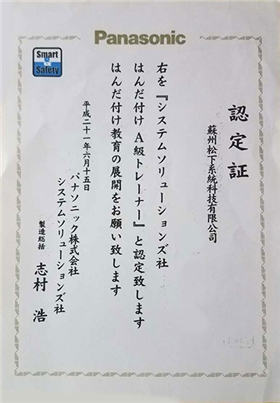 Smart & Safety
Panasonic
認定証
蘇州松下系統科技有限公司
右を『システムソリューションズ社
はんだ付け A級トレーナー』と認定致します
はんだ付け教育の展開をお願い致します
平成二十一年六月十五日
パナソニック株式会社
システムソリューションズ社
製造総括 志村 浩